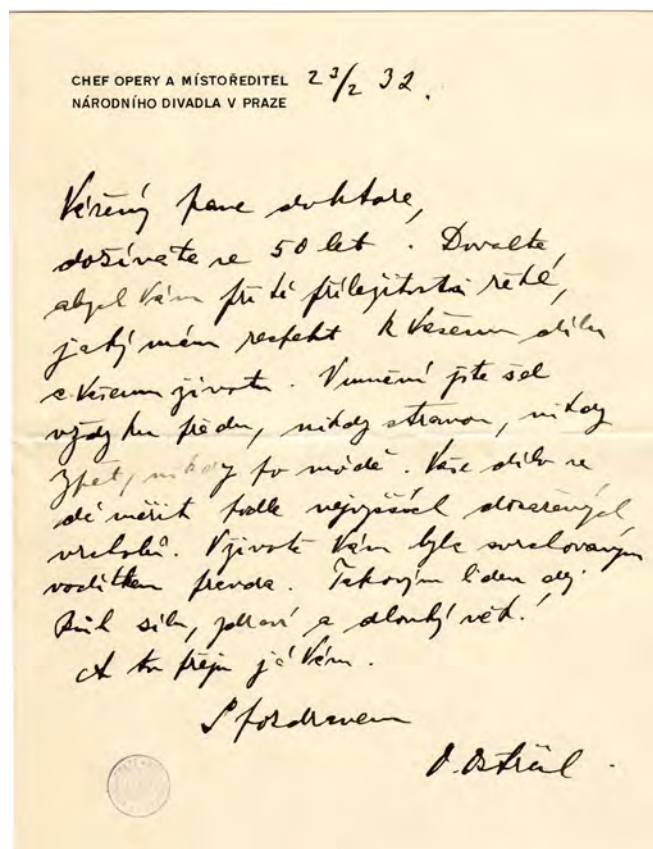 CHEF OPERY A MÍSTOŘEDITEL 23/2 32.
NÁRODNÍHO DIVADLA V PRAZE
Vážený pane doktore,
dožíváte se 50 let. Dovolte,
abych Vám při té příležitosti řekl,
jaký mám respekt k Vašemu dílu
a Vašemu životu. V umění jste šel
vždy ku předu, nikdy stranou, nikdy
zpět, nikdy po módě. Vaše dílo se
dá měřit podle nejvyšších dosažených
vrcholů. V životě Vám byla svrchovaným
vodítkem pravda. Takovým lidem dej
Bůh sílu, zdraví a dlouhý věk!
A to přeji já Vám.
S pozdravem
O. Ostrčil.